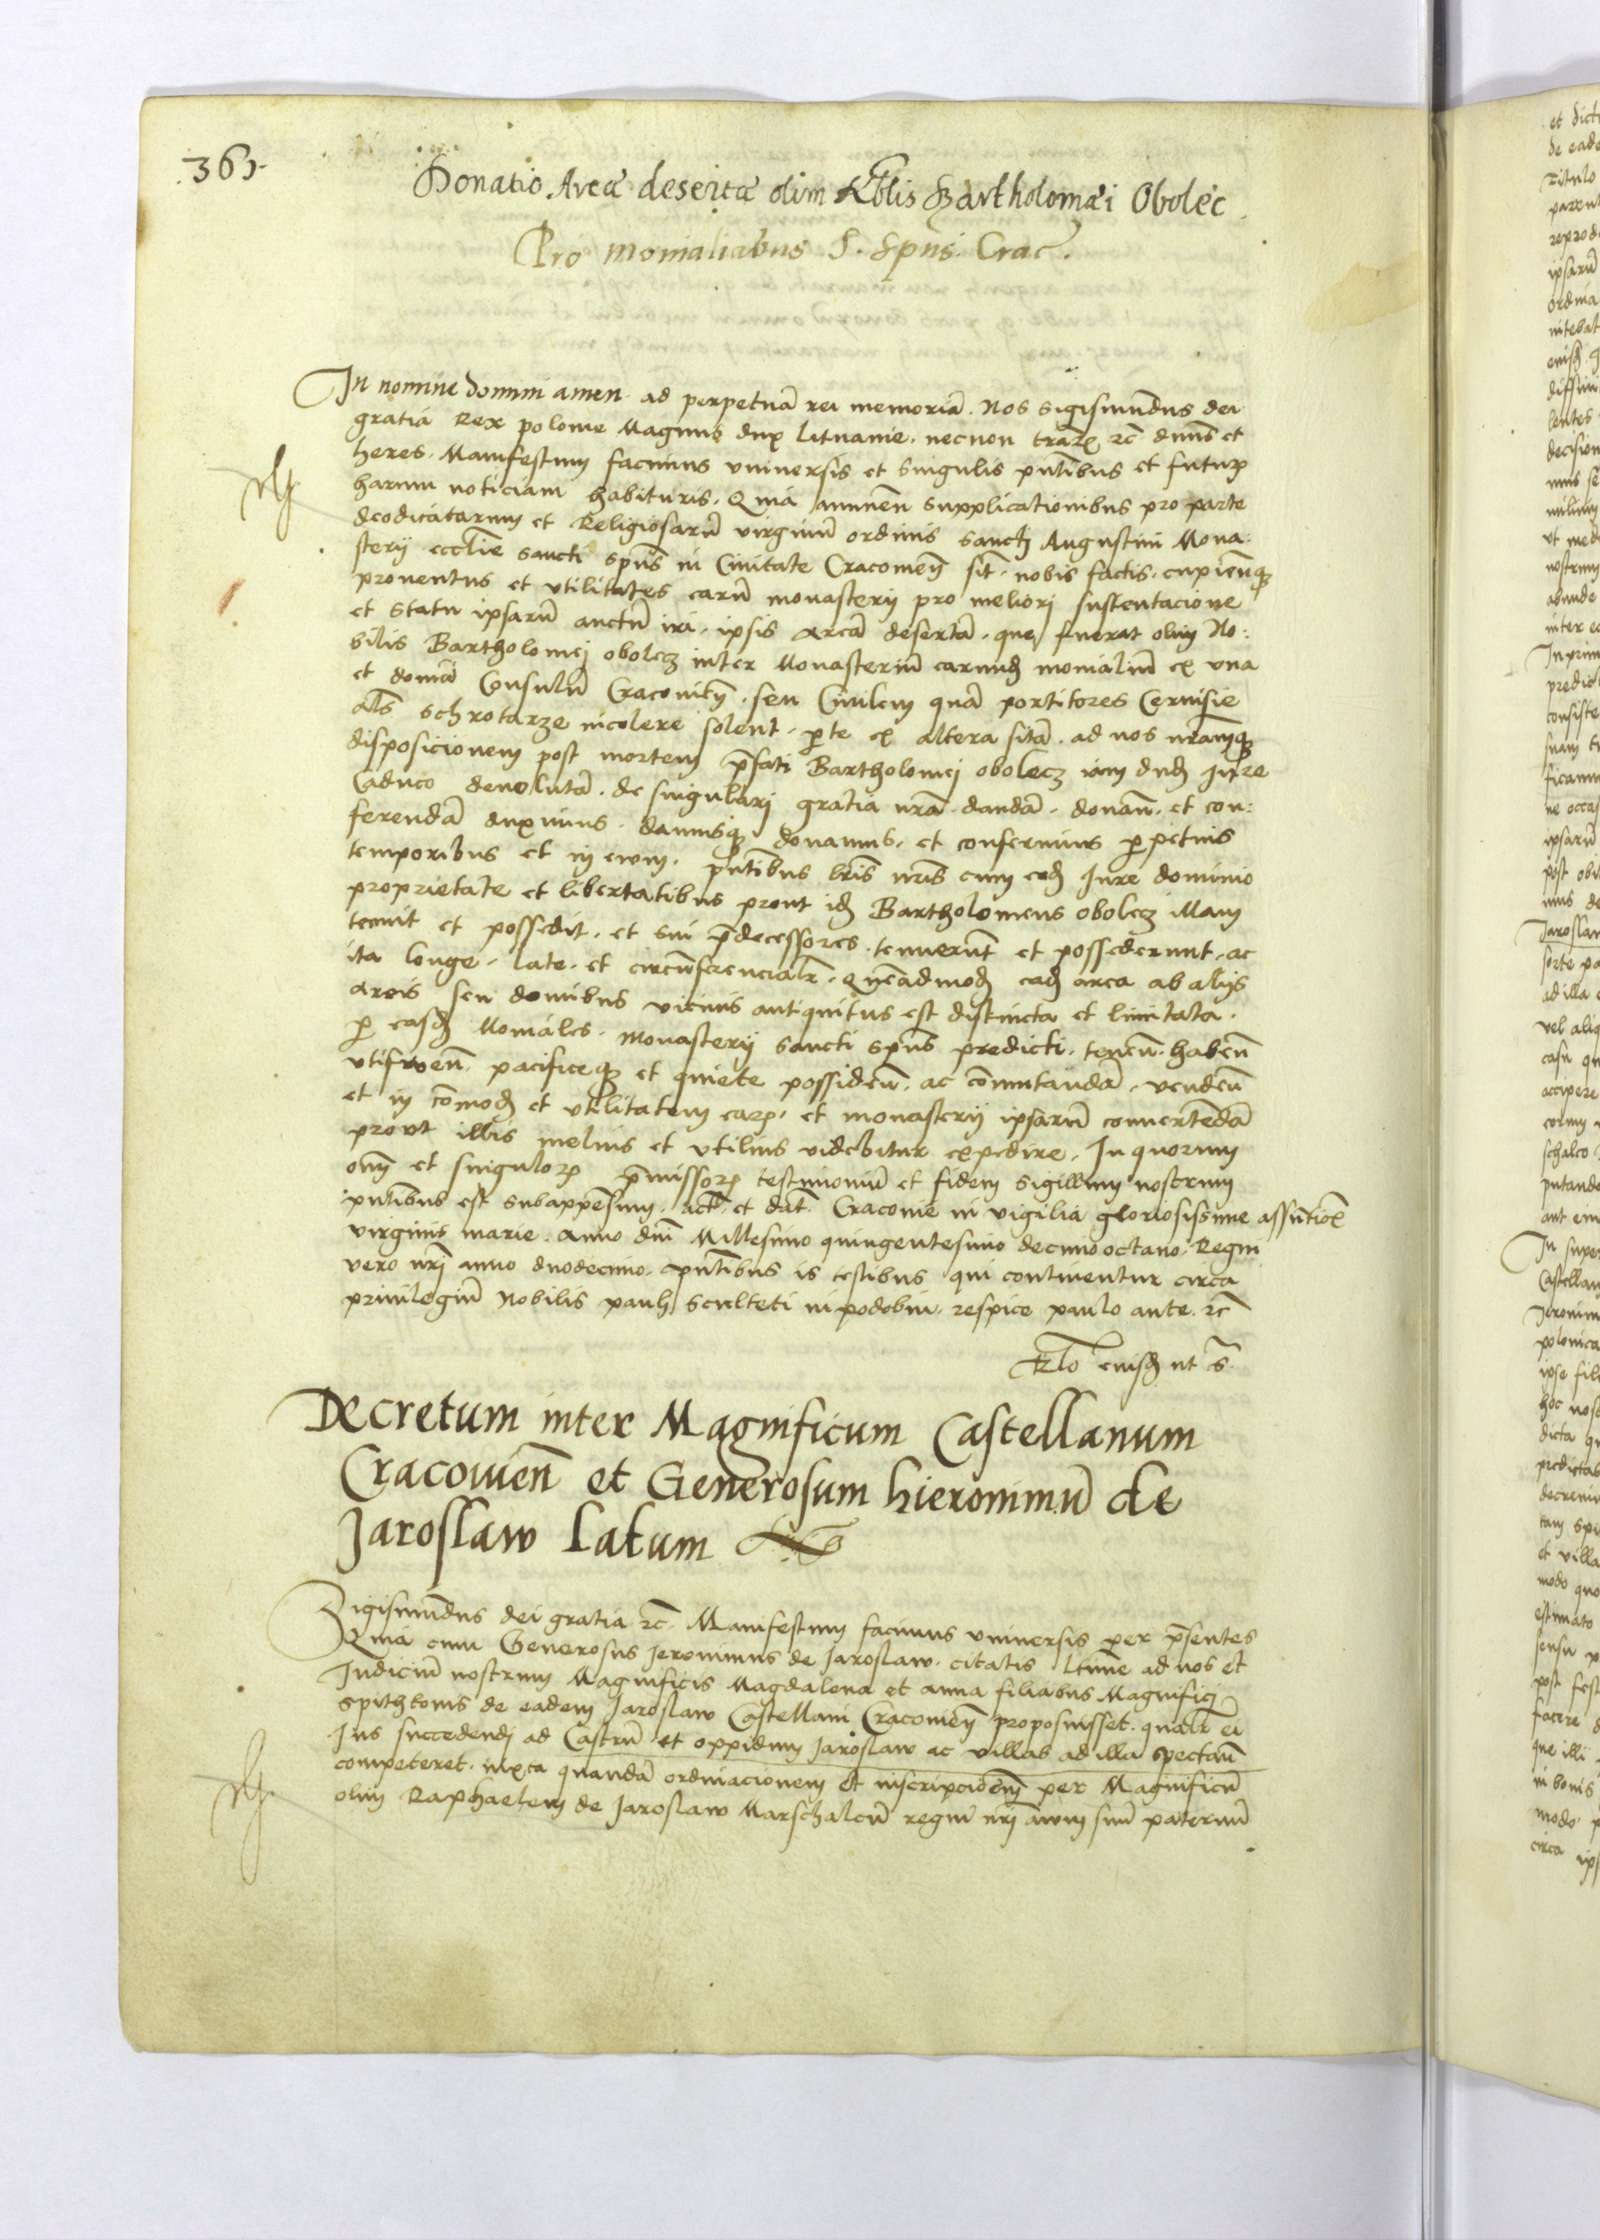 361.
Donatio Areæ desertæ olim Nblis Bartholomæi Obolec
Pro monialiabus S. Spûs. Crac.
In nomine domini amen. ad perpetuã rei memoriã. Nos Sigismũdus dei
gratia Rex polonie Magnus dux Lituanie. necnon trarz rc̃ dnũs et
heres. Manifestum facimus vniuersis et singulis pñtibus et futurz
harum noticiam habituris. Quia annueñ supplicationibus pro parte
deodicatarum et Religiosarũ virginũ ordinis sancti Augustini Mona:
sterij ecclie sancti spũs in Ciuitate Cracouieñ sit̃. nobis factis. cupienqz
prouentus et vtilitates earũ monasterij pro meliori sustentacione
et statu ipsarũ auctũ iri. ipsis Areã desertã. que fuerat olim No:
bilis Bartholomej obolecz inter Monasteriũ earundz monialiũ ex vna
et domũ Consulũ Cracouieñ. seu Ciuilem quã portitores Ceruisie
als̃ schrotarze incolere solent. pte ex altera sitã. ad nos nrãmqz
disposicionem post mortem p̃fati Bartholomej obolecz iam dudz Jure
Caduco deuolutã. de singulari gratia nrã. dandã. donañ. et con:
ferendã duximus. damusqz donamus. et conferimus ppetuis
temporibus et in ewm. pñtibus lr̃is nr̃is cum eodz Jure dominio
proprietate et libertatibus prout idz Bartholomeus obolecz illam
tenuit et possedit. et sui p̃decessores. tenuerũt et possederunt. ac
ita longe. late. et circũferencialr̃. Quẽadmodz eadz area ab alijs
areis seu domibus vicinis antiquitus est distincta et limitata.
p easdz Moniales. Monasterij sancti spũs predicti. teneñ. habeñ
vtifrueñ. pacificeqz et quiete possideñ. ac cõmutandã. vendeñ
et in cõmodz et vtilitatem earz. et monasterij ipsarũ conuertẽdã
prout illis melius et vtilius videbitur expedire. In quorum
oñi et singulorz p̃missorz testimoniũ et fidem Sigillum nostrum
pñtibus est subappensum. act̃. et dat̃. Cracouie in vigilia gloriosissime assũtiois̃
virginis marie. Anno dnĩ Millesimo quingentesimo decimo octauo. Regni
vero nrĩ anno duodecimo. pñtibus is testibus qui continentur circa
priuilegiũ Nobilis pauli sculteti in podobin. respice paulo ante. rc̃
Rlo eiusdz ut s̃.
Decretum inter Magnificum Castellanum
Cracouieñ et Generosum hieronimũ de
Jaroslaw latum
Sigismũdus dei gratia rc̃. Manifestum facimus vniuersis per p̃sentes
Quia cum Generosus Jeronimus de Jaroslaw. citatis ltime ad nos et
Judiciũ nostrum Magnificis Magdalena et anna filiabus Magnificj
Spithkonis de eadem Jaroslaw Castellani Cracouieñ proposuisset. qualr̃ ei
Jus succedendj ad Castrũ et oppidum Jaroslaw ac villas ad illa spectañ
competeret. iuxta quandã ordinacionem et inscripcioẽm per Magnificũ
olim Raphaelem de Jaroslaw Marschalcũ regni nrĩ awm suũ paternũ